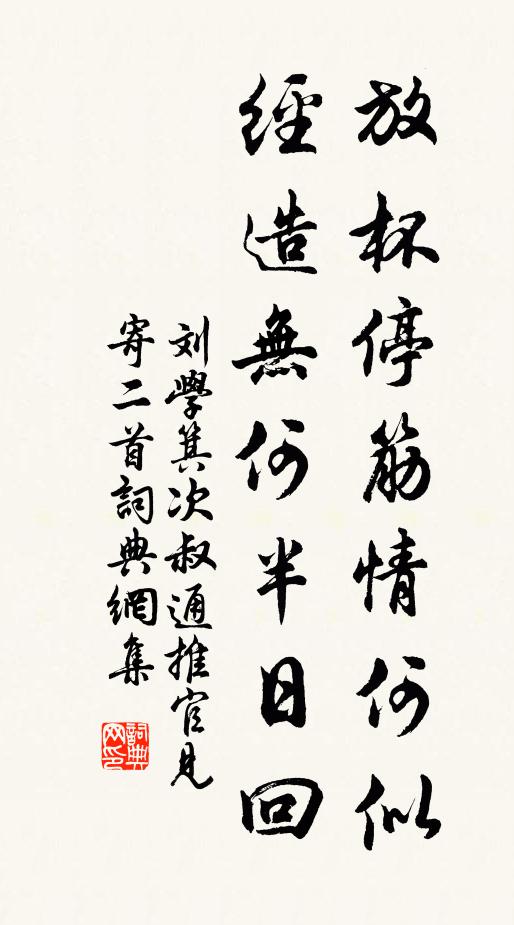 放杯停筋情何似
經造無何半日回
刘學箕次叔通推官見
寄二首詞典網集
詞典
网印